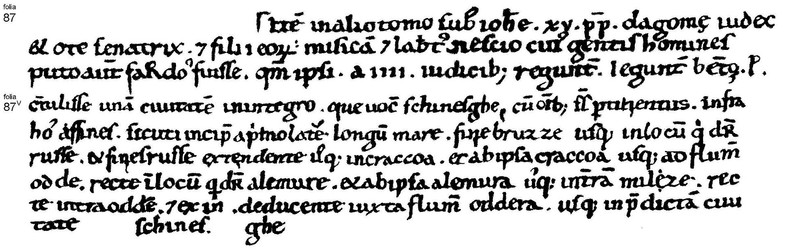 folia
87
Itē inaliotomo sub ioh̄e . xv . p̄p . dagomę iudex
& ote senatrix . ⁊ filii eoꝝ : misicā ⁊ lab̄tꝰ nescio cuiꝰ gentis homines
puto aut̄ sardoꝰ fuisse . qm̄ ipsi . a IIII . iudicib; regunt̄ . legunt̄ . p .
folia
87v
c̄tulisse unā ciuitatē inintegro . que uoc̄ schinesghe , cū om̄ib; suis ptinentiis . infra
hoꝰ affines . sicuti incip̄ a p̄mo lateꝰ longū mare . fine bruzze usq; inlocū q̄ dr̄
russe . & fines russe extendente usq; incraccoa . & abipsa craccoa usq; ad flum̄
odde . recte īlocū q̄ dr̄ alemure . & abipsa alemura usq; intrā milęze . rec
te intra oddē . ⁊ exīn . deducente iuxta flum̄ oddera . usq; inp̄dictā ciui
tatē schines . ghe